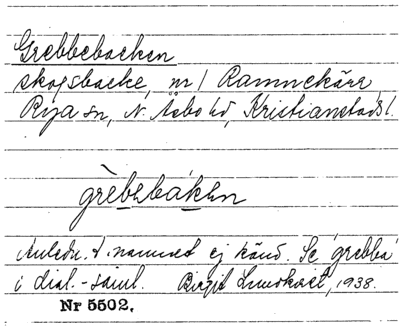 Grebbebacken
skogsbacke, nr 1 Ramnekärr,
Rya sn, N. Åsbo hd, Kristianstads l.
grèbebákən
Anledn. t. namnet ej känd. Se 'grebba'
i dial.-saml. Birgit Lundkvist, 1938.
Nr 5502.